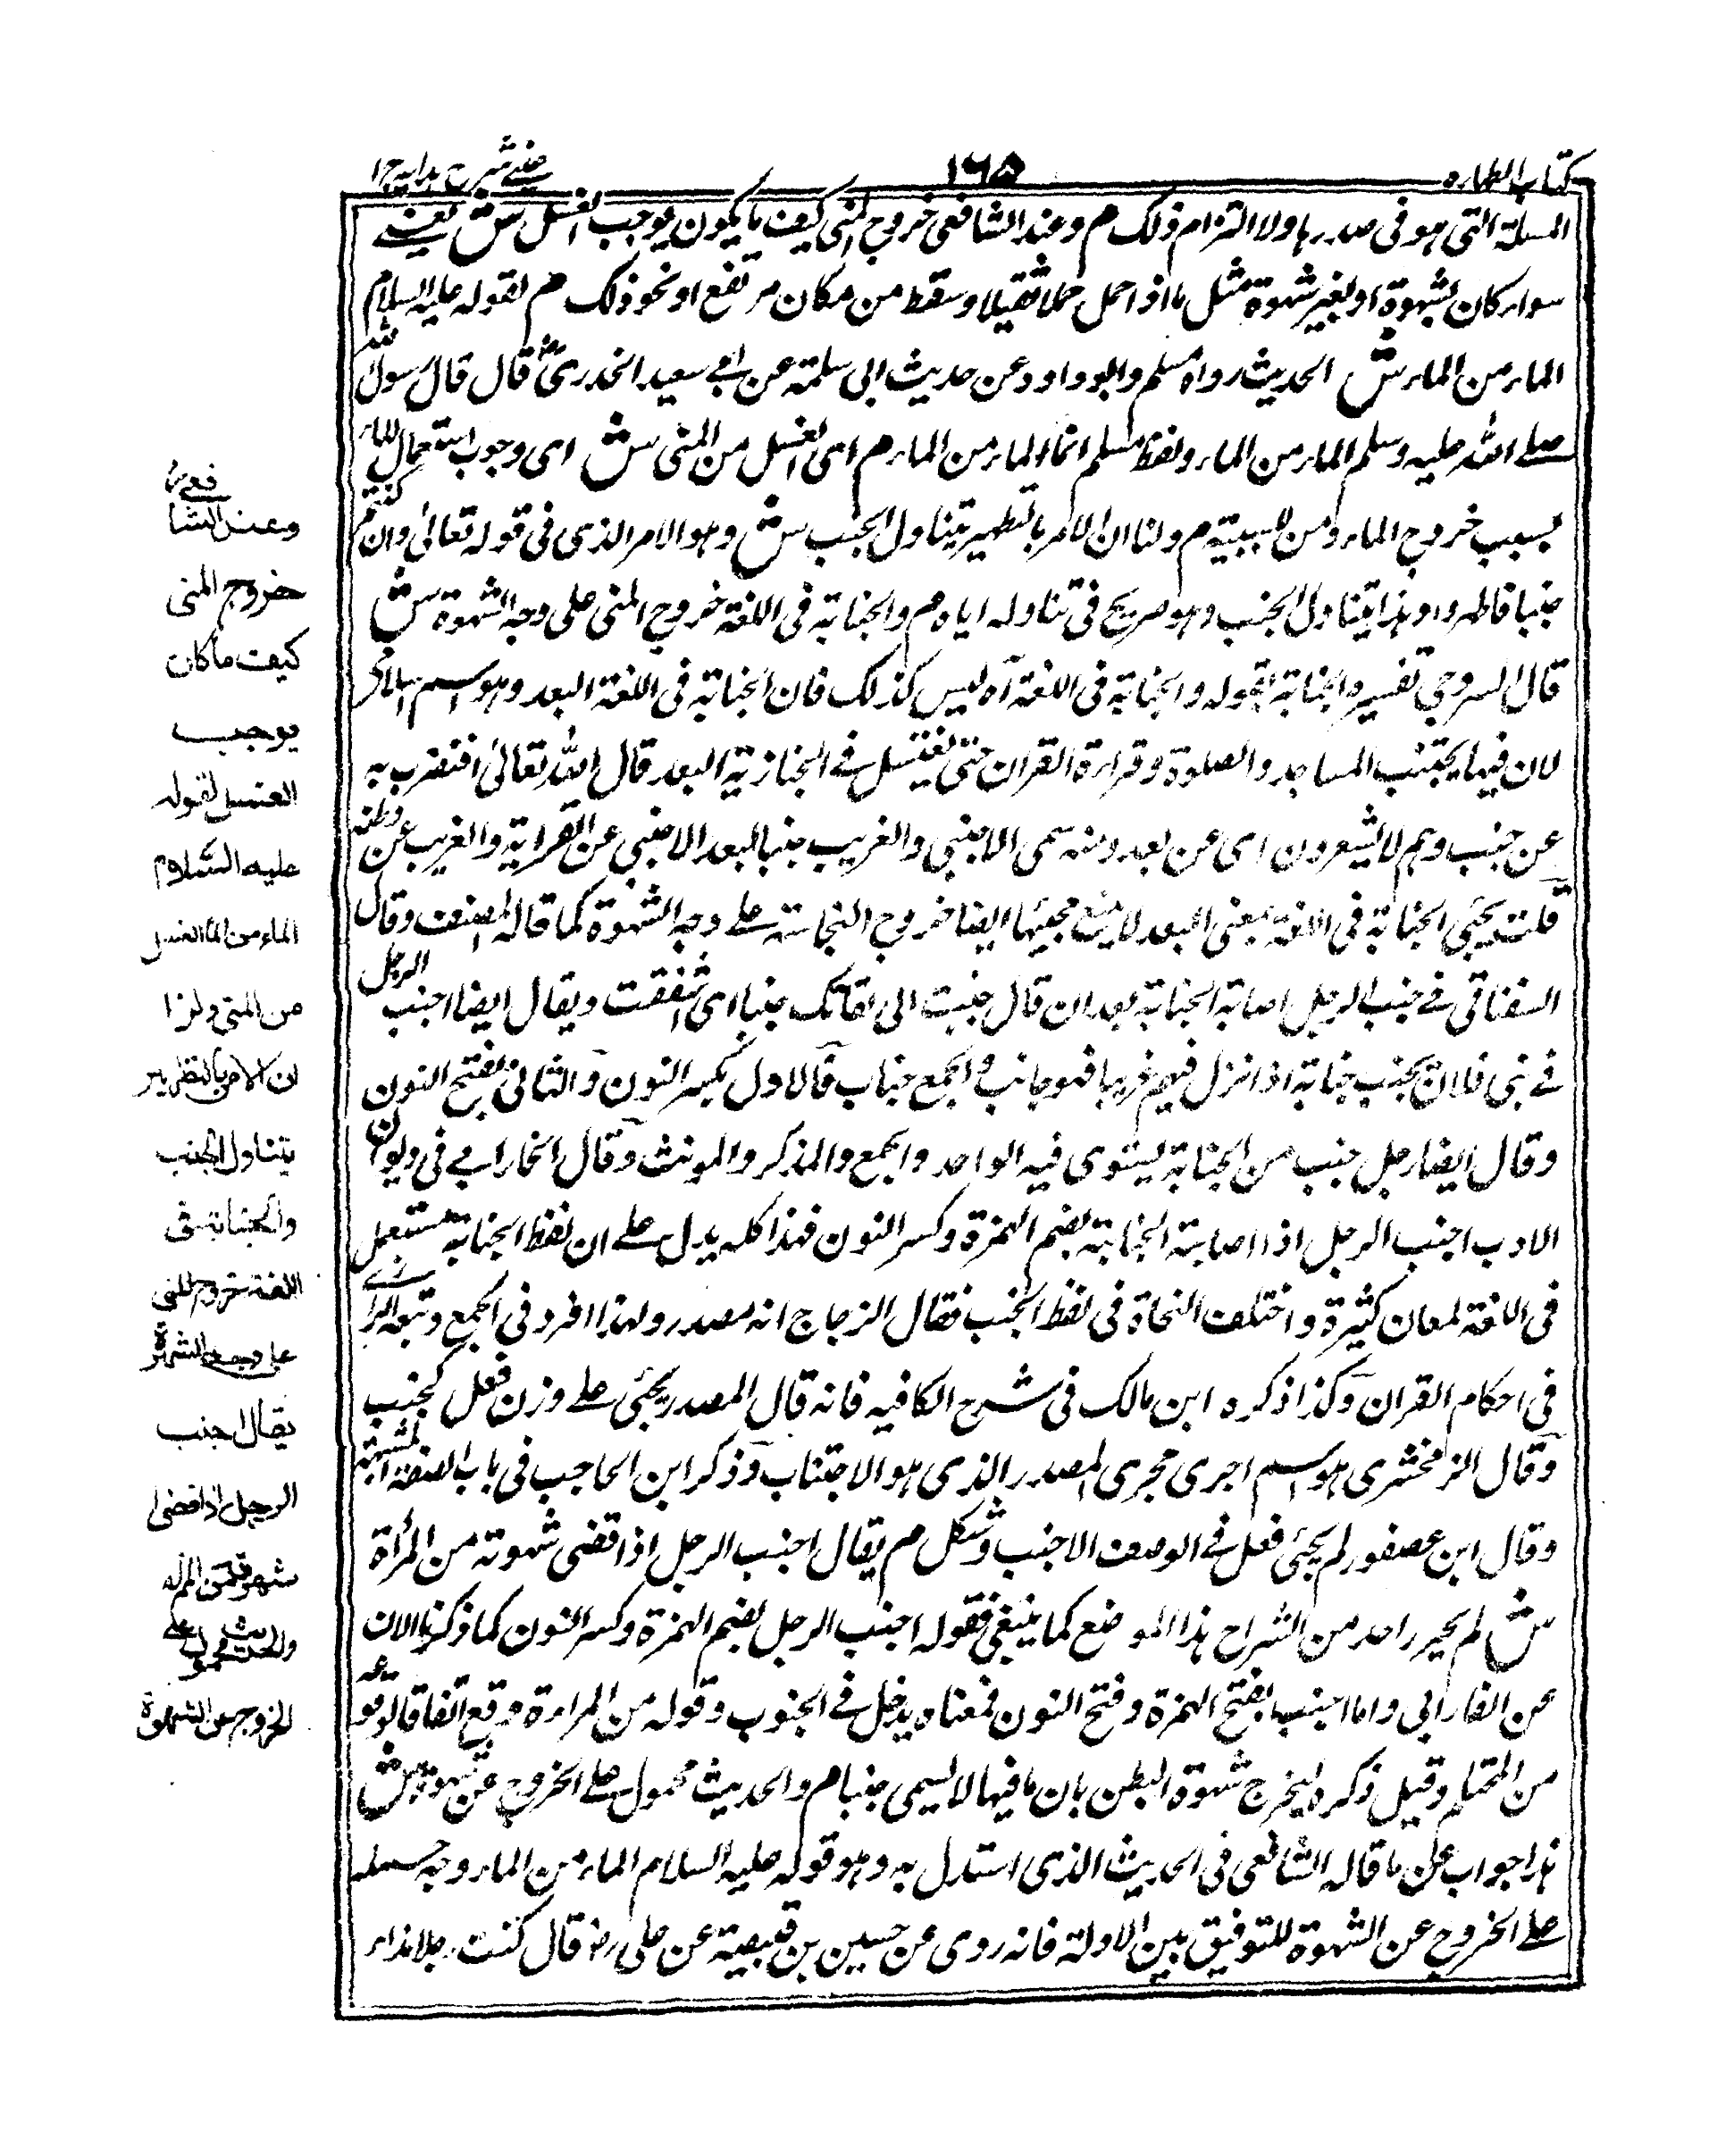 كتاب الطهاره
١٦٥
عيني شرح هدايه ج ١
المسئلة التي هو في صدرها ولا التزام ذلك م وعند الشافعي خروج المني كيف ما يكون يوجب الغسل ش يعني
سواء كان بشهوة او بغير شهوة مثل ما اذا حمل حملا ثقيلا وسقط من مكان مرتفع او نحو ذلك م لقوله عليه السلام
الماء من الماء ش الحديث رواه مسلم وابو داود عن حديث ابي سلمة عن ابي سعيد الخدري رض قال قال رسول الله
صلے الله عليه وسلم الماء من الماء ولفظ مسلم انما الماء من الماء م اى الغسل من المنى ش اى وجوب استعمال الماء
بسبب خروج الماء ومن للسببية م ولنا ان الامر بالتطهير يتناول الجنب ش وهو الامر الذى فى قوله تعالى وان كنتم
جنبا فاطهروا وهذا يتناول الجنب وهو صريح فى تناوله اياه م والجنابة فى اللغة خروج المنى على وجه الشهوة ش
قال السروجي تفسيره الجنابة بقوله والجنابة فى اللغة آه ليس كذلك فان الجنابة فى اللغة البعد وهو اسم
لان فيها يجتنب المساجد والصلوة وقراءة القران حتى يغتسل فے البعد قال الله تعالى به
عن جنب وهم لا يشعرون اى عن بعد ومنه سمى الاجنبى والغريب جنبا لبعد الاجنبى عن القرابة والغريب عن وطنه
قلت يجئ الجنابة فى اللغة بمعنى البعد لا يمنع مجيئها ايضا خروج النجاسة علے وجه الشهوة كما قاله المصنف وقال
السغناقى فے جنب الرجل اصابة الجنابة بعد ان قال جنبت الى لقائك جنبا اى اشفقت ويقال ايضا اجنب الرجل
فے بنى فلان يجنب جنابة اذا نزل فيهم غريبا فهو جانب والجمع جناب فالاول بكسر النون والثانى بفتح النون
وقال ايضا رجل جنب من الجنابة يستوى فيه الواحد والجمع والمذكر والمونث وقال الفارابے فى ديوان
الادب اجنب الرجل اذا اصابته الجنابة بضم الهمزة وكسر النون فهذا كله يدل علے ان لفظ الجنابة مستعمل
فى اللغة لمعان كثيرة واختلف النحاة فى لفظ الجنب فقال الزجاج انه مصدر ولهذا افرد فى الجمع وتبعه الرازے
فى احكام القران وكذا ذكره ابن مالك فى شرح الكافيه فانه قال المصدر يجئى علے وزن فعل كجنب
وقال الزمخشرى هو اسم اجرى مجرى المصدر الذى هو الاجتناب وذكر ابن الحاجب فى باب الصفة المشبهة
وقال ابن عصفور لم يجئى فعل فے الوصف الا جنب وشكل م يقال اجنب الرجل اذا قضى شهوته من المرأة
ش لم يحرر احد من الشراح هذا الموضع كما ينبغى فقوله اجنب الرجل بضم الهمزة وكسر النون كما ذكرنا الان
عن الفارابى واما اجنب بفتح الهمزة وفتح النون فمعناه يدخل فے الجنوب وقوله من المراءة وقع اتفاقا لوقوعه
من المحتلم وقيل ذكره ليخرج شهوة البطن بان ما فيها لا يسمى جنبا م والحديث محمول علے الخروج عن شهوة ش
هذا جواب عن ما قاله الشافعى فى الحديث الذى استدل به وهو قوله عليه السلام الماء من الماء وجه حمله
علے الخروج عن الشهوة للتوفيق بين الادلة فانه روى عن حسين بن قبيصة عن على رض قال كنت رجلا مذاء
وعند الشافعي رح
خروج المنى
كيف ما كان
يوجب
الغسل لقوله
عليه السلام
الماء من الماء الغسل
من المنى ولنا
ان الامر بالتطهير
يتناول الجنب
والجنابة فى
اللغة خروج المنى
على وجه الشهوة
يقال اجنب
الرجل اذا قضى
شهوته من المرأة
والحديث محمول على
الخروج عن الشهوة